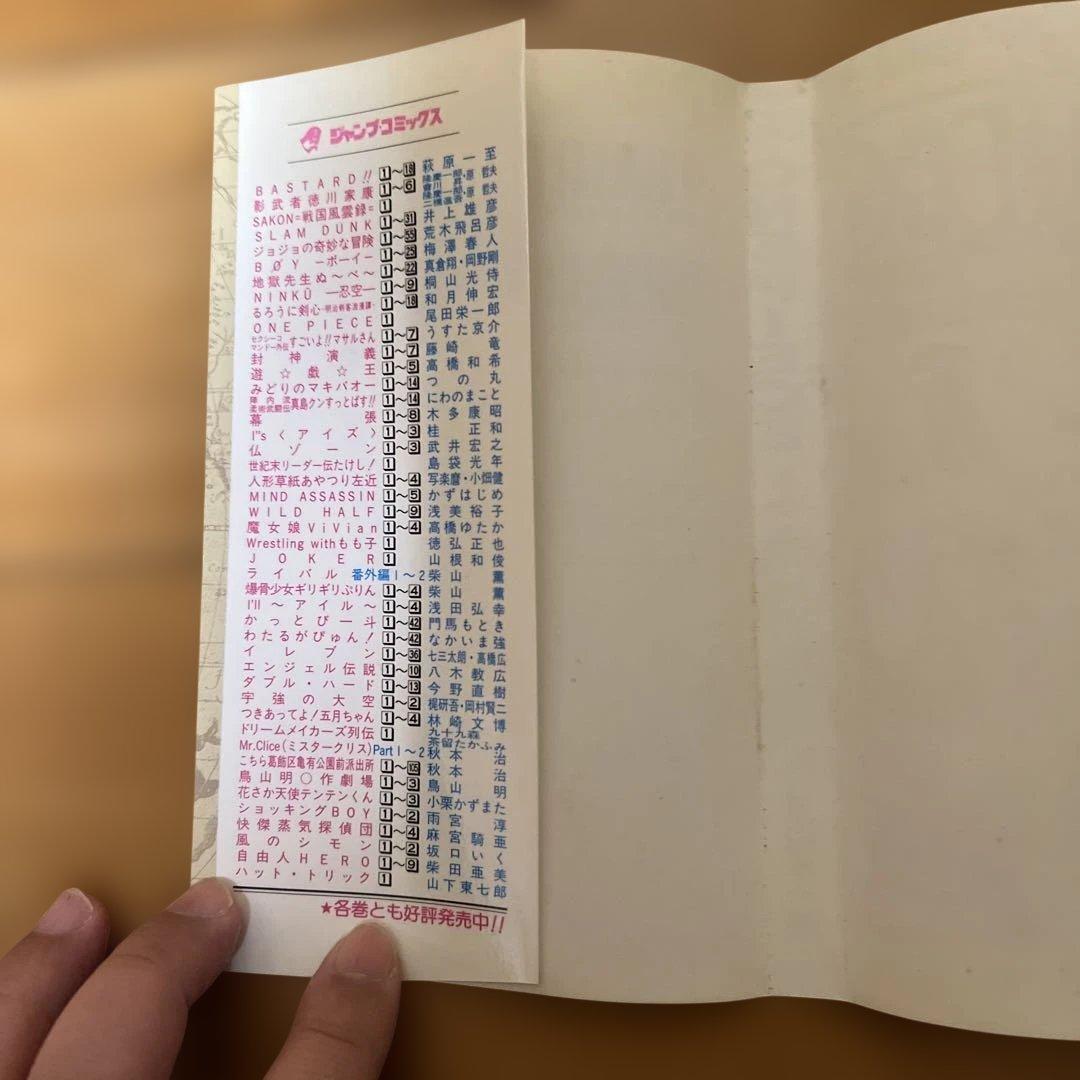 ジャンプ・コミックス
BASTARD!! 1～18 萩原一至
影武者徳川家康 1～6 隆慶一郎・原哲夫 會川昇
SAKON=戦国風雲録= 1 隆慶一郎・原哲夫 二橋進吾
SLAM DUNK 1～31 井上雄彦
ジョジョの奇妙な冒険 1～55 荒木飛呂彦
BØY ―ボーイ― 1～25 梅澤春人
地獄先生ぬ～べ～ 1～22 真倉翔・岡野剛
NINKŪ ―忍空― 1～9 桐山光侍
るろうに剣心-明治剣客浪漫譚- 1～18 和月伸宏
ONE PIECE 1 尾田栄一郎
セクシーコマンドー外伝 すごいよ!!マサルさん 1～7 うすた京介
封神演義 1～7 藤崎竜
遊☆戯☆王 1～5 高橋和希
みどりのマキバオー 1～14 つの丸
陣内流柔術武闘伝 真島クンすっとばす!! 1～14 にわのまこと
幕張 1～6 木多康昭
I"s〈アイズ〉 1～3 桂正和
仏ゾーン 1～3 武井宏之
世紀末リーダー伝たけし! 1 島袋光年
人形草紙あやつり左近 1～4 写楽麿・小畑健
MIND ASSASSIN 1～5 かずはじめ
WILD HALF 1～9 浅美裕子
魔女娘ViVian 1～4 高橋ゆたか
Wrestling withもも子 1 徳弘正也
JOKER 1 山根和俊
ライバル 番外編1～2 柴山薫
爆骨少女ギリギリぷりん 1～4 柴山薫
I'll ～アイル～ 1～4 浅田弘幸
かっとび一斗 1～42 門馬もとき
わたるがぴゅん! 1～42 なかいま強
イレブン 1～36 七三太朗・高橋広
エンジェル伝説 1～10 八木教広
ダブル・ハード 1～13 今野直樹
宇強の大空 1～2 梶研吾・岡村賢二
つきあってよ!五月ちゃん 1～4 林崎文博
ドリームメイカーズ列伝 1 九十九森 茶留たかふみ
Mr.Clice(ミスタークリス) Part 1～2 秋本治
こちら葛飾区亀有公園前派出所 1～105 秋本治
鳥山明○作劇場 1～3 鳥山明
花さか天使テンテンくん 1～3 小栗かずまた
ショッキングBOY 1～2 雨宮淳
快傑蒸気探偵団 1～4 麻宮騎亜
風のシモン 1～2 坂口いく
自由人HERO 1～9 柴田亜美
ハット・トリック 1 山下東七郎
★各巻とも好評発売中!!